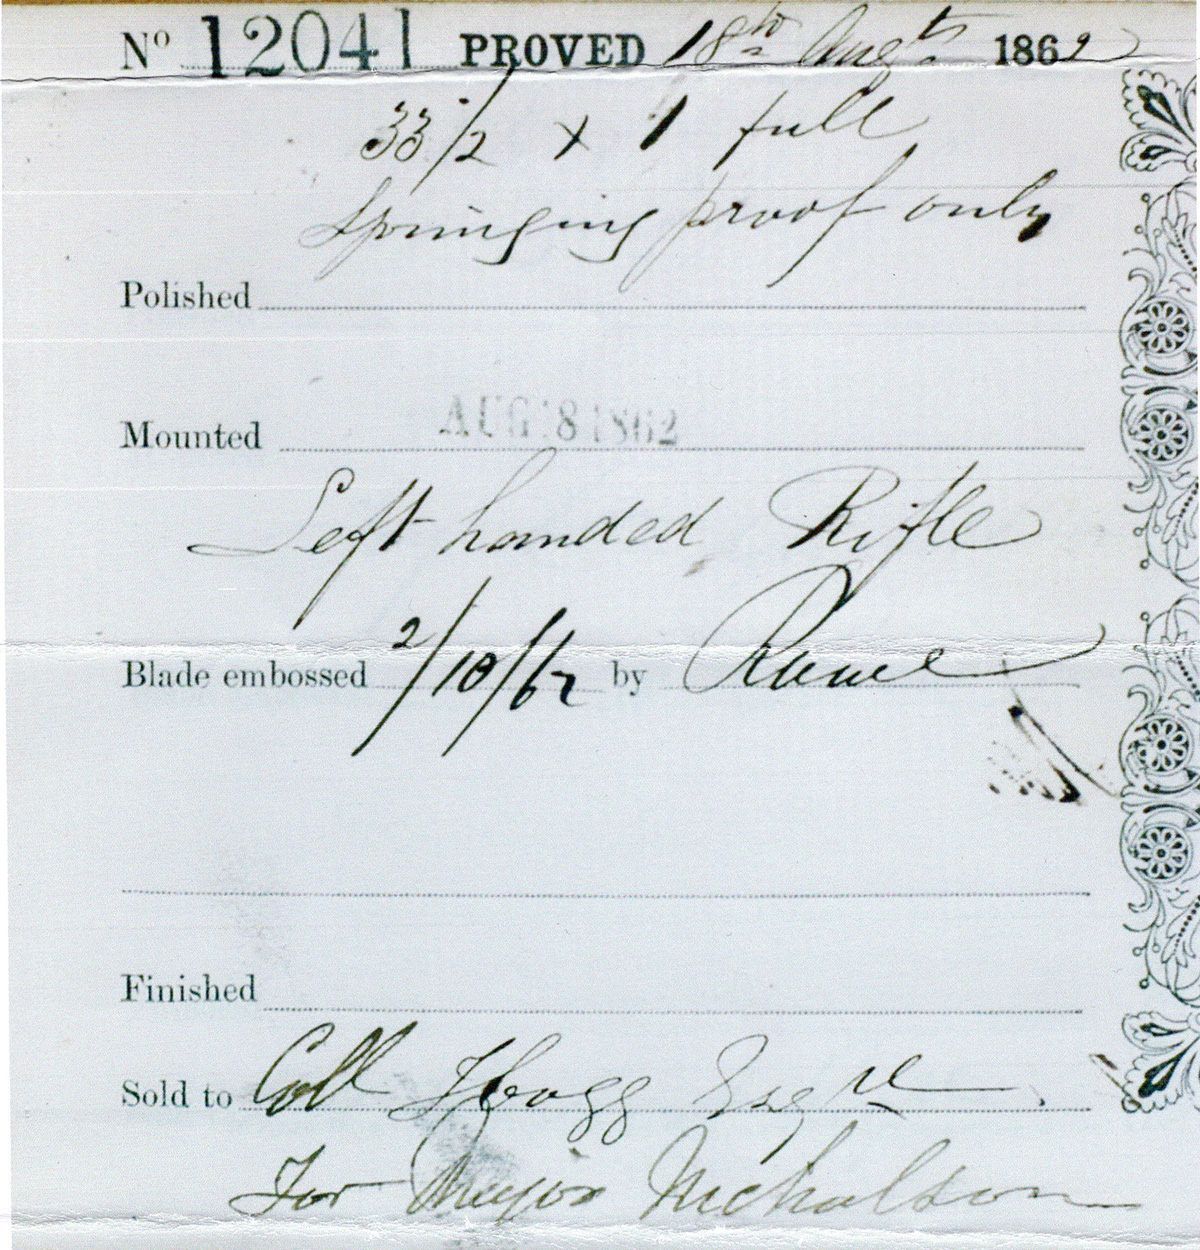 Nº 12041 PROVED 18th Augt 1862
33 1/2 x 1 full
Springing proof only
Polished
Mounted AUG 18 1862
Left handed Rifle
Blade embossed 2/10/62 by
Finished
Sold to Coll Hogg Esqre
For Major Nicholson